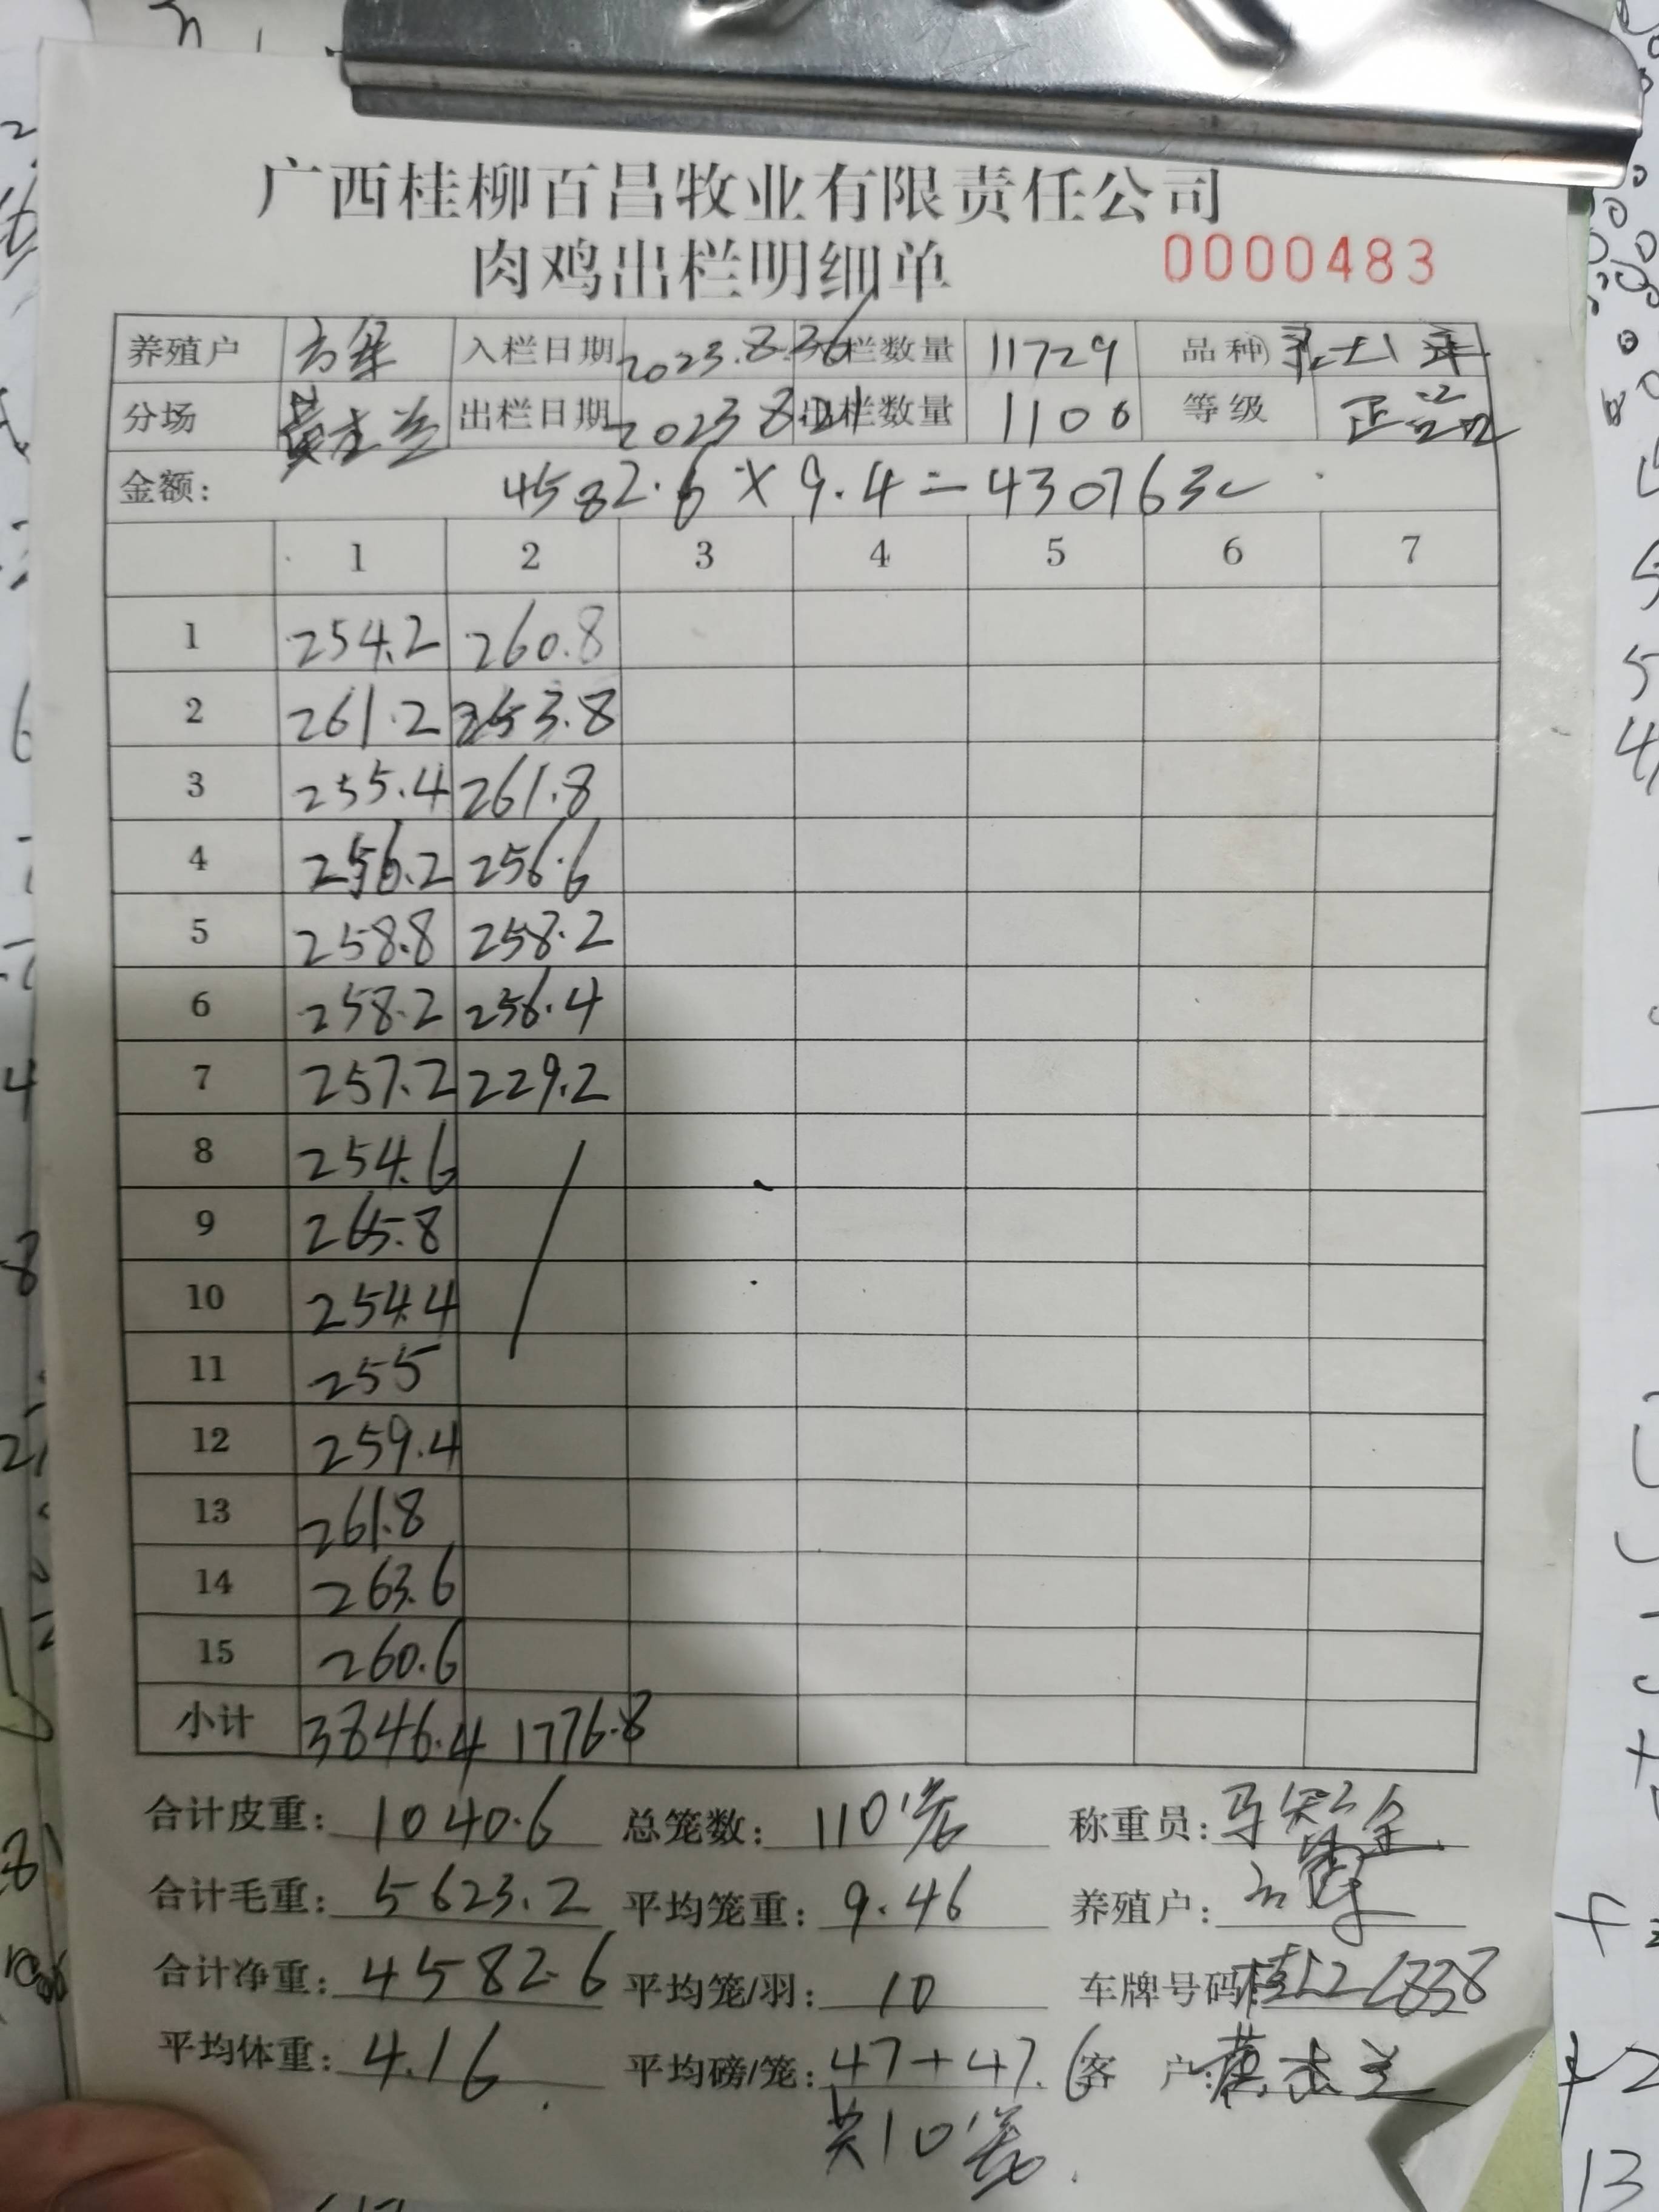 广西桂柳百昌牧业有限责任公司
肉鸡出栏明细单 0000483
养殖户 入栏日期 2023. 栏数量 11729 品种
分场 黄杰兰 出栏日期 2023 8.21 出栏数量 1100 等级 正品
金额: 4582.6 × 9.4 = 43076
1 2 3 4 5 6 7
1 254.2 260.8
2 261.2 253.8
3 255.4 261.8
4 256.2 256.6
5 258.8 258.2
6 258.2 256.4
7 257.2 229.2
8 254.6
9 265.8
10 254.4
11 255
12 259.4
13 261.8
14 263.6
15 260.6
小计 3846.4 1776.8
合计皮重: 1040.6 总笼数: 110笼 称重员:
合计毛重: 5623.2 平均笼重: 9.46 养殖户:
合计净重: 4582.6 平均笼/羽: 10 车牌号码:
平均体重: 4.16 平均磅/笼: 47+47.6 客户: 黄杰兰
共10笼